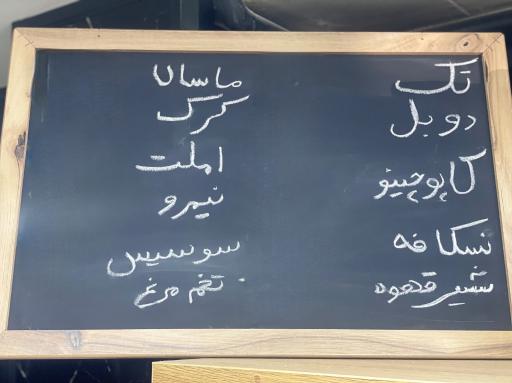 تک
دوبل
کاپوچینو
نسکافه
شیر قهوه
ماسالا
کرک
املت
نیمرو
سوسیس
تخم مرغ